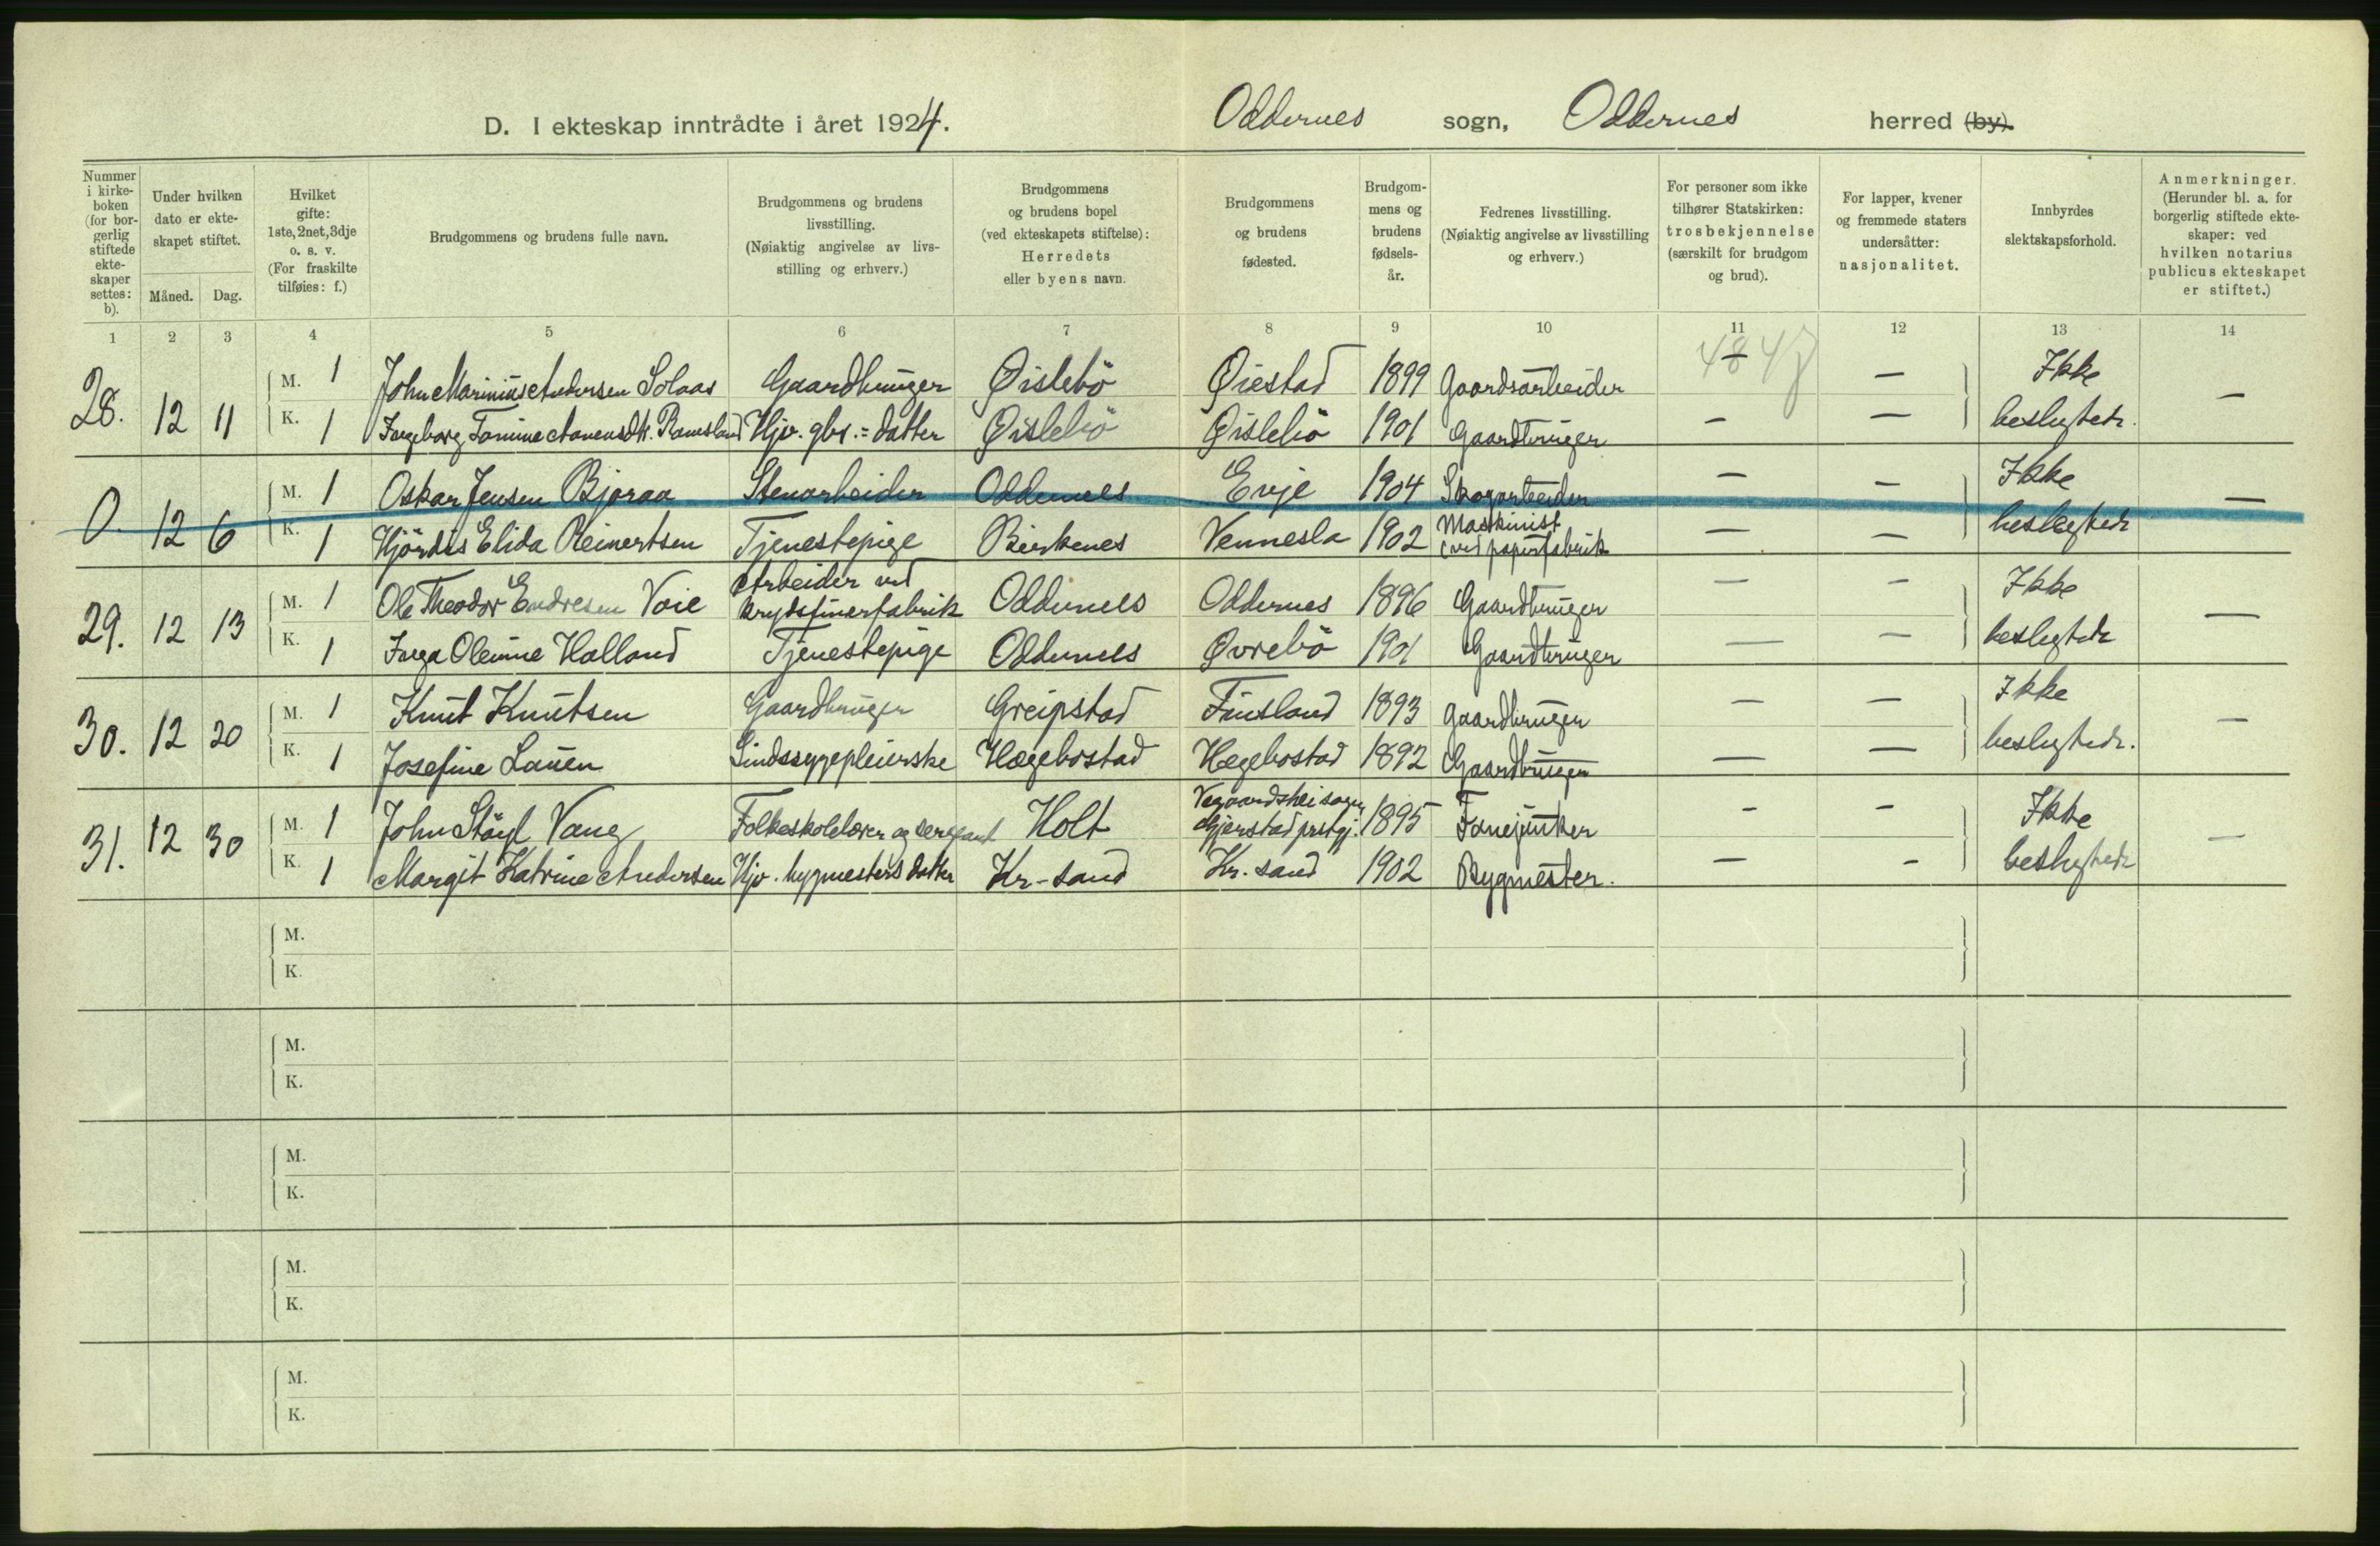 D. I ekteskap inntrådte i året 1924. Oddernes sogn, Oddernes herred (by).
Nummer i kirke- boken (for bor- gerlig stiftede ekte- skaper settes: b).
Under hvilken dato er ekte- skapet stiftet.
Måned. Dag.
Hvilket gifte: 1ste, 2net, 3dje o. s. v. (For fraskilte tilføies: f.)
Brudgommens og brudens fulle navn.
Brudgommens og brudens livsstilling. (Nøiaktig angivelse av livs- stilling og erhverv.)
Brudgommens og brudens bopel (ved ekteskapets stiftelse): Herredets eller byens navn.
Brudgommens og brudens fødested.
Brudgom- mens og brudens fødsels- år.
Fedrenes livsstilling. (Nøiaktig angivelse av livsstilling og erhverv.)
For personer som ikke tilhører Statskirken: trosbekjennelse (særskilt for brudgom og brud).
For lapper, kvener og fremmede staters undersåtter: nasjonalitet.
Innbyrdes slektskapsforhold.
Anmerkninger. (Herunder bl. a. for borgerlig stiftede ekte- skaper: ved hvilken notarius publicus ekteskapet er stiftet.)
1 2 3 4 5 6 7 8 9 10 11 12 13 14
28. 12 11 M. 1 John Marinius Andersen Solaas Gaardbruger Øislebö Øiestad 1899 Gaardsarbeider — Ikke —
K. 1 Ingeborg Tomine Aanensdtr. Ramsland Hjv. gbr.= datter Øislebö Øislebö 1901 Gaardbruger — — beslegtede.
0. 12 6 M. 1 Oskar Jensen Bjoraa Stenarbeider Oddernes Evje 1904 Skogarbeider — — Ikke —
K. 1 Hjördis Elida Reinertsen Tjenestepige Birkenes Vennesla 1902 Maskinist ved papirfabrik — — beslegtede
29. 12 13 M. 1 Ole Theodor Endresen Voie Arbeider ved krydsfinerfabrik Oddernes Oddernes 1896 Gaardbruger — — Ikke —
K. 1 Inga Oleanne Halland Tjenestepige Oddernes Øvrebö 1901 Gaardbruger — — beslegtede
30. 12 20 M. 1 Knut Knutsen Gaardbruger Greipstad Finsland 1893 Gaardbruger — — Ikke —
K. 1 Josefine Lauen Sindssygepleierske Hægebostad Hægebostad 1892 Gaardbruger — — beslegtede.
31. 12 30 M. 1 John Vang Folkeskolelærer og sergeant Holt Vegaardshei sogn Gjerstad prstgj. 1895 Fanejunker — — Ikke —
K. 1 Margit Katrine Andersen Hjv. bygmesters datter Kr-sand Kr.sand 1902 Bygmester. — — beslegtede
M.
K.
M.
K.
M.
K.
M.
K.
M.
K.